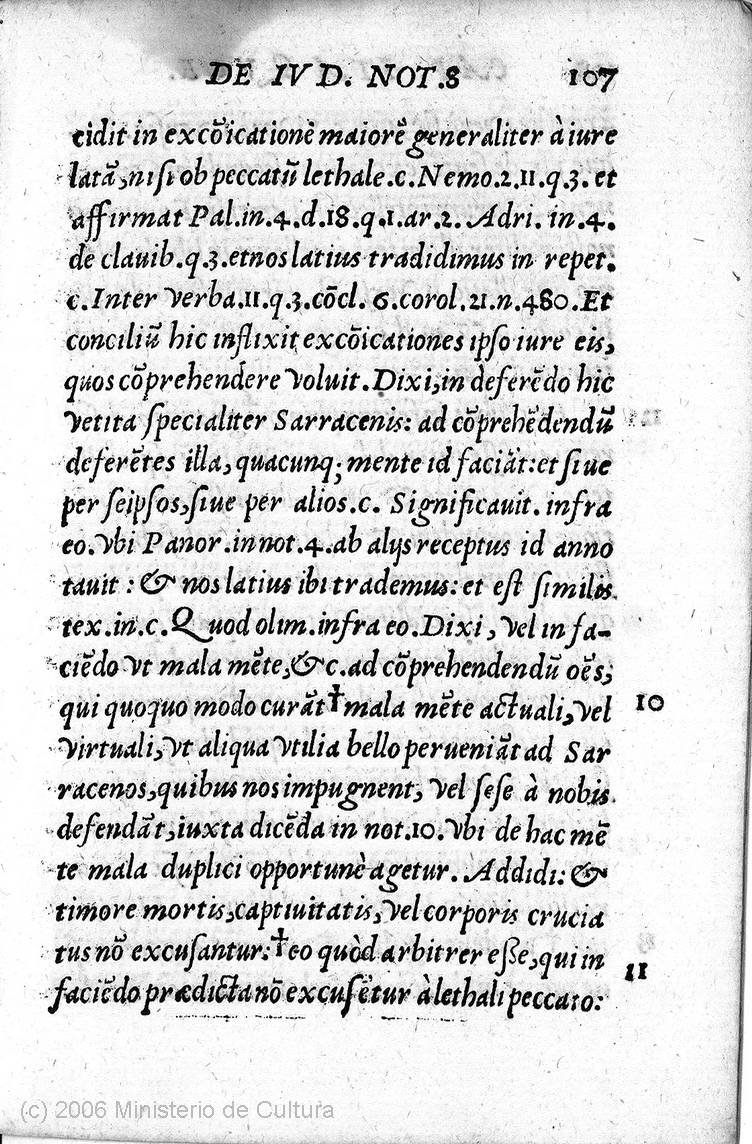 DE IVD. NOT.8 107
cidit in excōicationē maiorē generaliter à iure
latā, nisi ob peccatū lethale.c.Nemo.2.11.q.3. et
affirmat Pal.in.4.d.18.q.1.ar.2. Adri. in.4.
de clauib.q.3.et nos latius tradidimus in repet.
c.Inter verba.11.q.3.cōcl. 6.corol.21.n.480.Et
conciliū hic inflixit excōicationes ipso iure eis,
quos cōprehendere voluit.Dixi,in deferēdo hic
vetita specialiter Sarracenis: ad cōprehēdendū
deferētes illa, quacunq; mente id faciāt:et siue
per seipsos,siue per alios.c. Significauit. infra
eo.vbi Panor.in not.4.ab alijs receptus id anno
tauit : & nos latius ibi trademus: et est similis
tex.in.c.Quod olim.infra eo.Dixi, vel in fa-
ciēdo vt mala mēte,&c.ad cōprehendendū oēs,
qui quoquo modo curāt†mala mēte actuali,vel 10
virtuali,vt aliqua vtilia bello perueniāt ad Sar
racenos,quibus nos impugnent, vel sese à nobis
defendāt,iuxta dicēda in not.10.vbi de hac mē
te mala duplici opportunè agetur. Addidi: &
timore mortis,captiuitatis,vel corporis crucia
tus nō excusantur:†eo quòd arbitrer esse,qui in 11
faciēdo prædicta nō excusētur à lethali peccato:
(c) 2006 Ministerio de Cultura